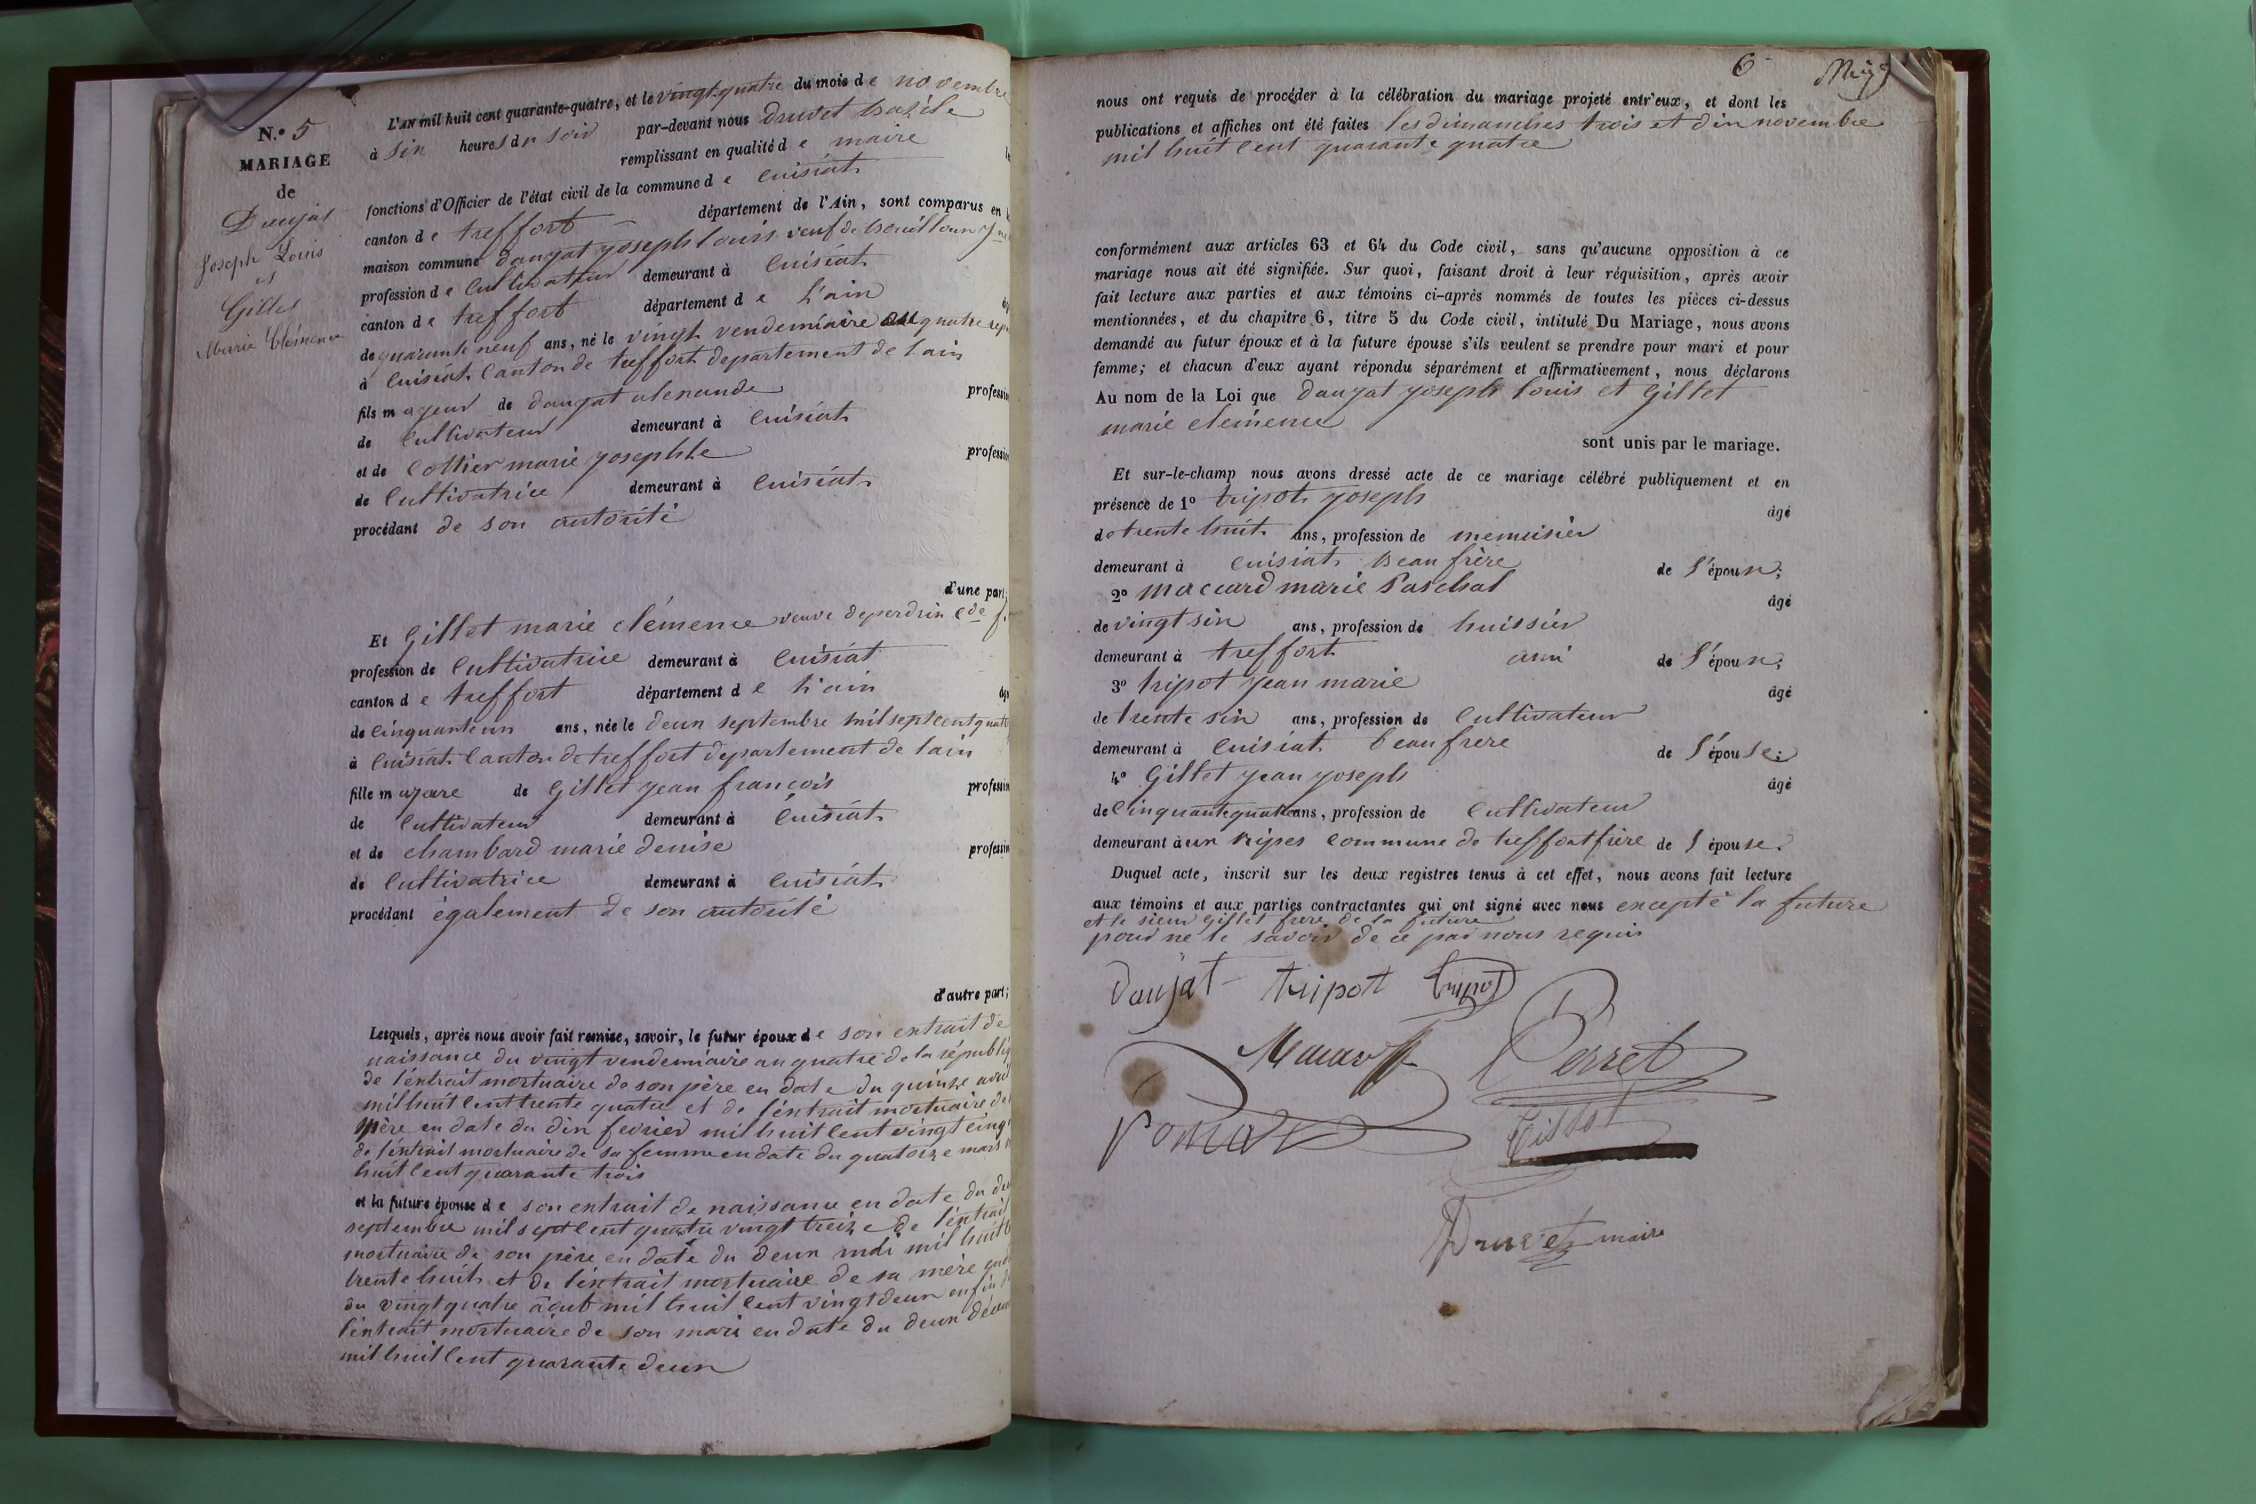 N.º 5
MARIAGE
de
Daujat
Joseph Louis
et
Gillet
Marie Clémence
L'AN mil huit cent quarante-quatre, et le vingt quatre du mois de novembre
à six heures du soir par-devant nous druvet
remplissant en qualité de maire
fonctions d'Officier de l'état civil de la commune de cuisiat
canton de treffort département de l'Ain, sont comparus en
maison commune daujat joseph louis veuf de
profession de cultivateur demeurant à cuisiat
canton de treffort département de l'ain
de quarante neuf ans, né le vingt vendemiaire an quatre
à cuisiat canton de treffort departement de lain
fils majeur de daujat alexandre profession
de cultivateur demeurant à cuisiat
et de cottier marie josephte profession
de cultivatrice demeurant à cuisiat
procédant de son autorité
d'une part;
Et Gillet marie clémence veuve de perdrix
profession de cultivatrice demeurant à cuisiat
canton de treffort département de l'ain
de cinquante un ans, née le deux septembre mil sept cent quatre
à cuisiat canton de treffort departement de lain
fille majeure de Gillet jean françois profession
de cultivateur demeurant à cuisiat
et de chambard marie denise profession
de cultivatrice demeurant à cuisiat
procédant également de son autorité
d'autre part;
Lesquels, après nous avoir fait remise, savoir, le futur époux de son extrait de
naissance du vingt vendemiaire an quatre de la républiq
de l'éxtrait mortuaire de son père en date du quinze avril
mil huit cent trente quatre et de l'éxtrait mortuaire de
mère en date du dix fevrier mil huit cent vingt cinq
de l'éxtrait mortuaire de sa femme en date du quatorze mars
huit cent quarante trois
et la future épouse de son extrait de naissance en date du deux
septembre mil sept cent quatre vingt treize de l'éxtrait
mortuaire de son père en date du deux mai mil huit c
trente huit et de l'éxtrait mortuaire de sa mère en d
du vingt quatre août mil huit cent vingt deux enfin d
l'éxtrait mortuaire de son mari en date du deux décem
mil huit cent quarante deux
6
nous ont requis de procéder à la célébration du mariage projeté entr'eux, et dont les
publications et affiches ont été faites les dimanches trois et dix novembre
mil huit cent quarante quatre
conformément aux articles 63 et 64 du Code civil, sans qu'aucune opposition à ce
mariage nous ait été signifiée. Sur quoi, faisant droit à leur réquisition, après avoir
fait lecture aux parties et aux témoins ci-après nommés de toutes les pièces ci-dessus
mentionnées, et du chapitre 6, titre 5 du Code civil, intitulé Du Mariage, nous avons
demandé au futur époux et à la future épouse s'ils veulent se prendre pour mari et pour
femme; et chacun d'eux ayant répondu séparément et affirmativement, nous déclarons
Au nom de la Loi que daujat joseph louis et Gillet
marie clémence
sont unis par le mariage.
Et sur-le-champ nous avons dressé acte de ce mariage célébré publiquement et en
présence de 1º tripot joseph âgé
de trente huit ans, profession de menuisier
demeurant à cuisiat Beau frère de l'époux;
2º maccard marie Paschal âgé
de vingt six ans, profession de huissier
demeurant à treffort ami de l'époux;
3º tripot jean marie âgé
de trente six ans, profession de cultivateur
demeurant à cuisiat beau frere de l'épouse;
4º Gillet jean joseph âgé
de cinquante quatre ans, profession de cultivateur
demeurant à commune de treffort frère de l'épouse.
Duquel acte, inscrit sur les deux registres tenus à cet effet, nous avons fait lecture
aux témoins et aux parties contractantes qui ont signé avec nous excepté la future
et le sieur gillet frere de la future
pour ne le savoir de ce par nous requis
Daujat tripot tripot
Perret
Tissot
Druvet maire